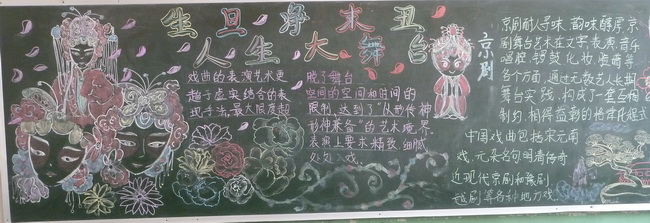 生旦净末丑
人生大舞台
戏曲的表演艺术更
趋于虚实结合的表
现手法,最大限度超
脱了舞台
空间的空间和时间的
限制,达到了“以形传神
形神兼备”的艺术境界。
表演上要求精致细腻
处处入戏。
京剧
京剧耐人寻味,韵味醇厚。京
剧舞台艺术在文学、表演、音乐
唱腔、锣鼓、化妆、脸谱等
各个方面,通过无数艺人长期
舞台实践,构成了一套互相
制约、相得益彰的格律化程式
中国戏曲包括宋元南
戏、元末名句明清传奇
近现代京剧和豫剧
越剧等各种地方戏